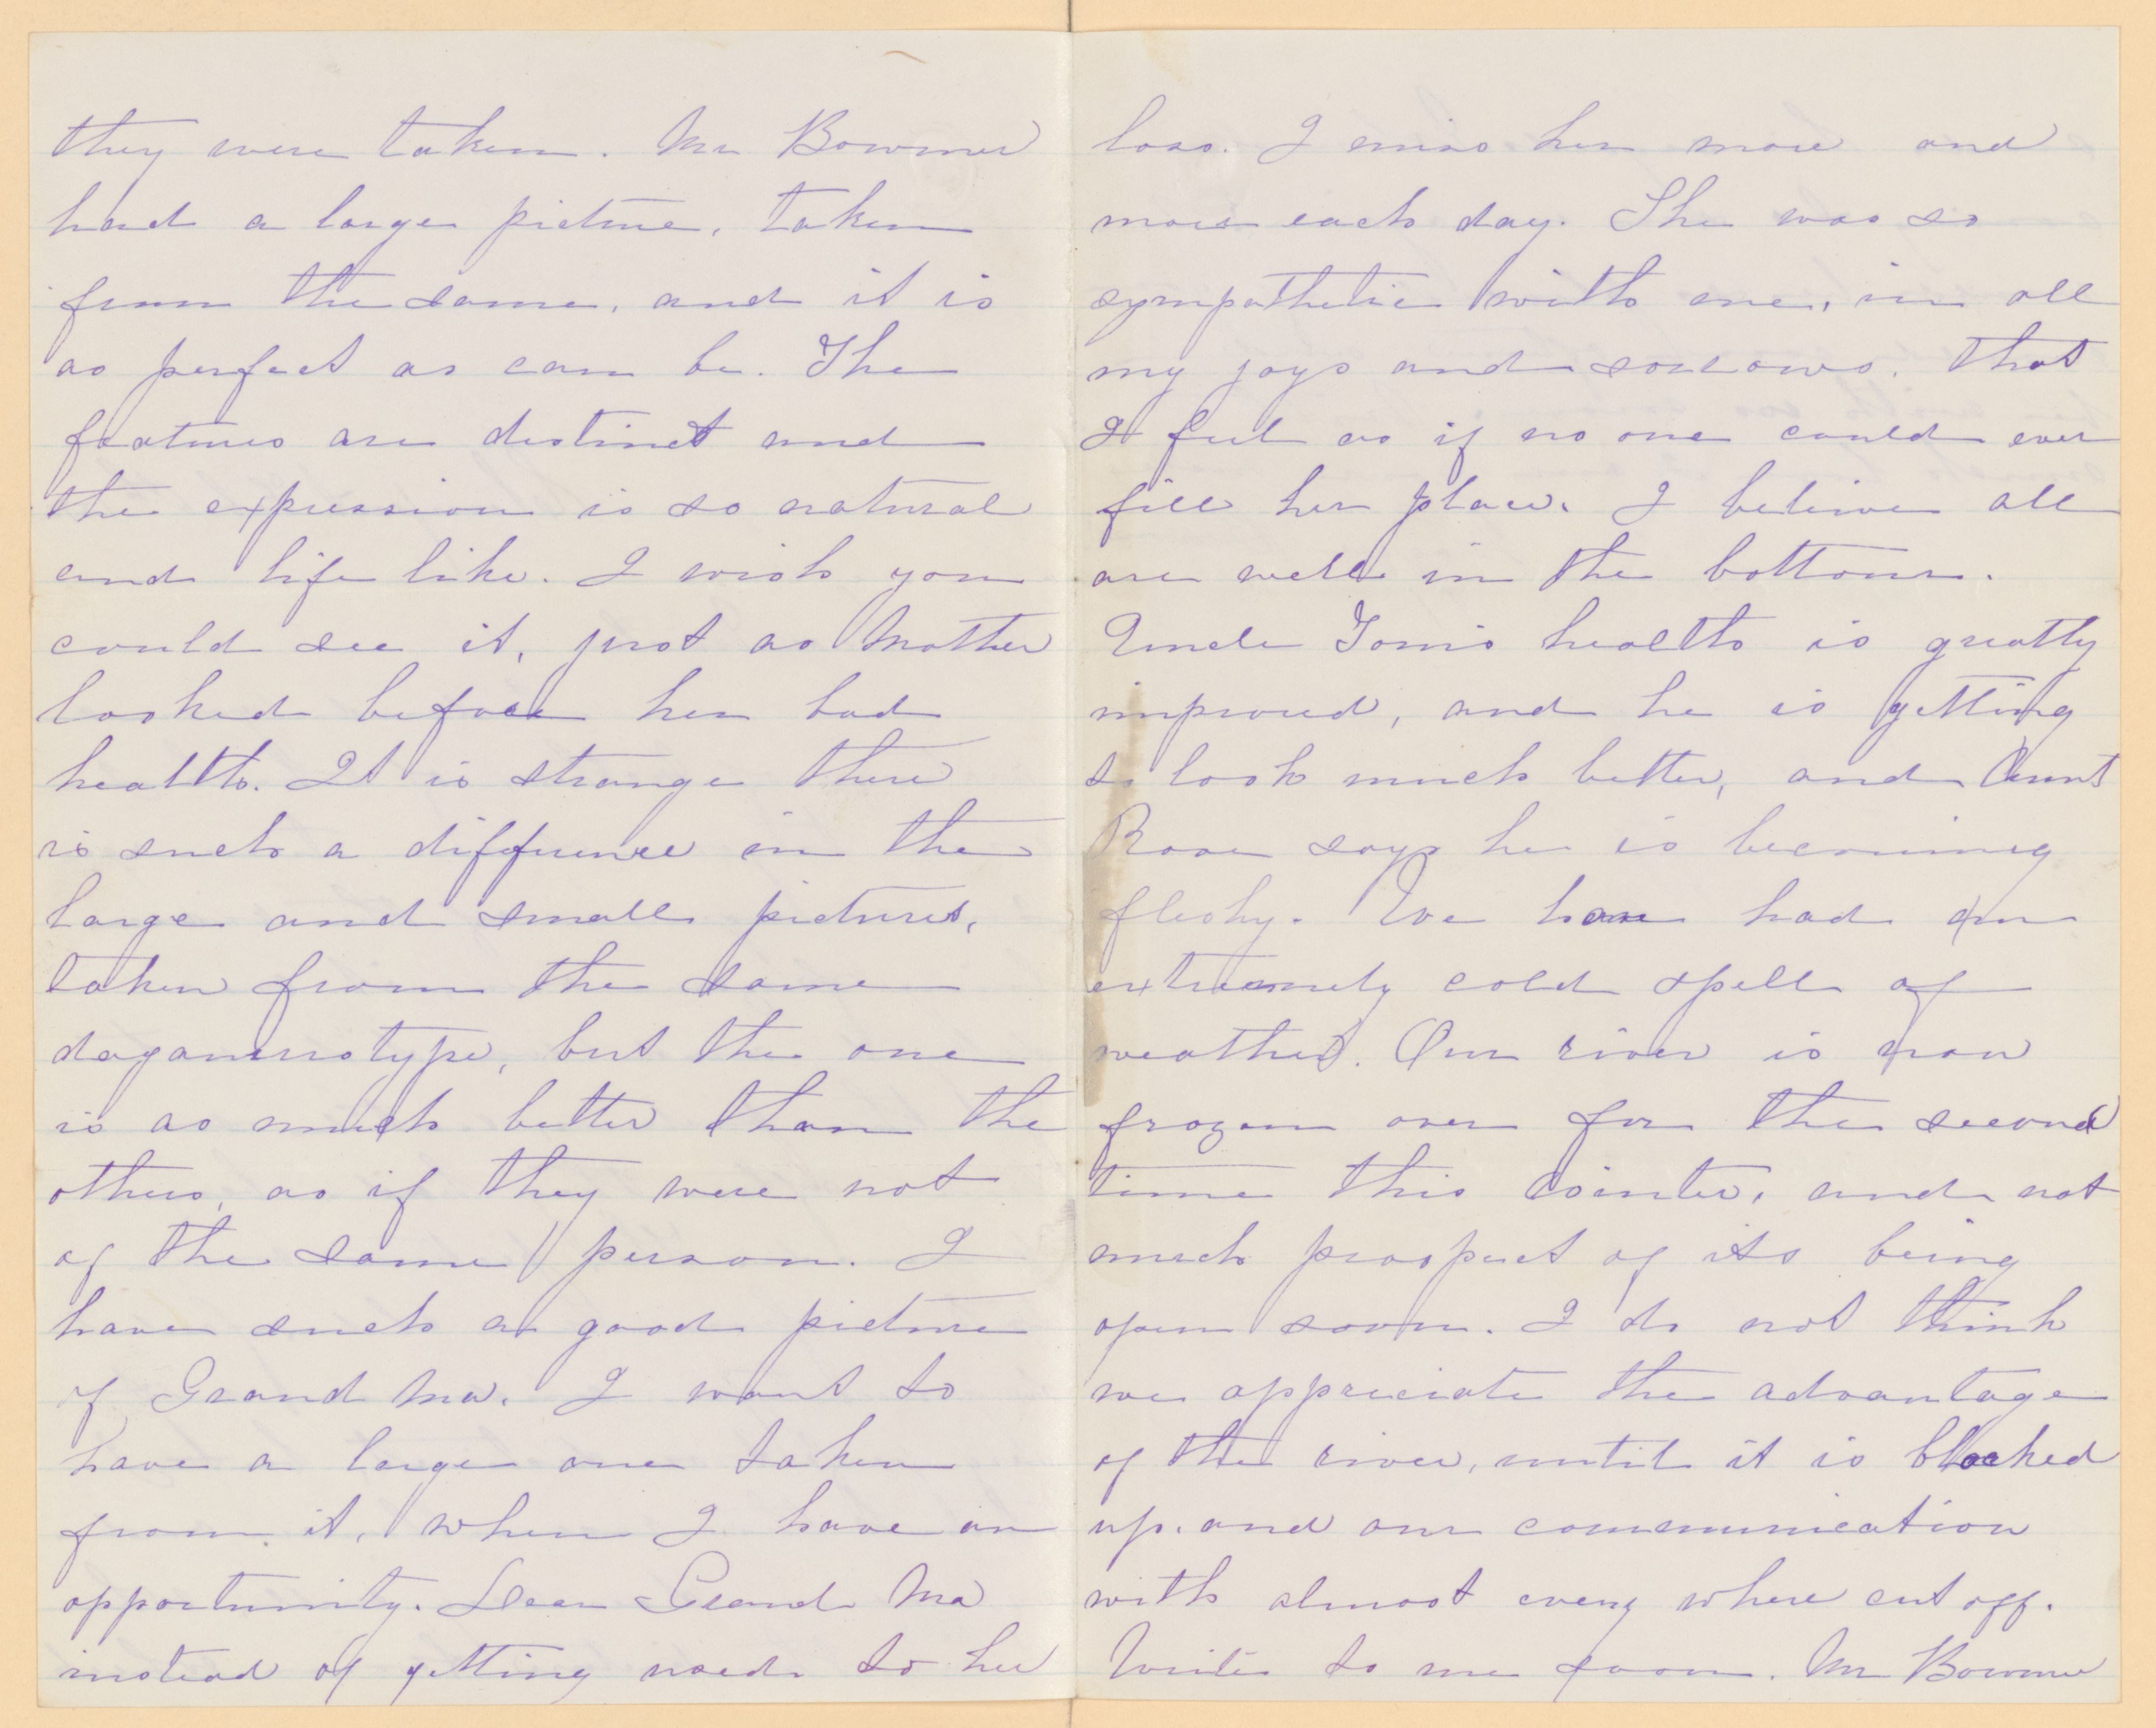 they were taken. Mr Bowmer
had a large picture, taken
from the same, and it is
as perfect as can be. The
features are distinct and
the expression is so natural
and life like. I wish you
could see it, just as Mother
looked before her bad
health. It is strange there
is such a difference in the
large and small pictures,
taken from the same
daganerrotype, but the one
is as much better than the
others, as if they were not
of the same person. I
have such a good picture
of Grand Ma. I want to
have a large one taken
from it, when I have an
opportunity. Dear Grand Ma
instead of getting used to her
loss. I miss her more and
more each day. She was so
sympathetic with me, in all
my joys and sorrows. That
I feel as if no one could ever
fill her place. I believe all
are well in the bottom.
Uncle Tom's health is greatly
improved, and he is getting
to look much better, and Aunt
Rose says he is becoming
fleshy. We have had an
extremely cold spell of
weather. Our river is now
frozen over for the second
time this winter, and not
much prospect of its being
open soon. I do not think
we appreciate the advantage
of the river, until it is blocked
up. and our communication
with almost every where cut off.
Write to me soon. Mr Bowmer